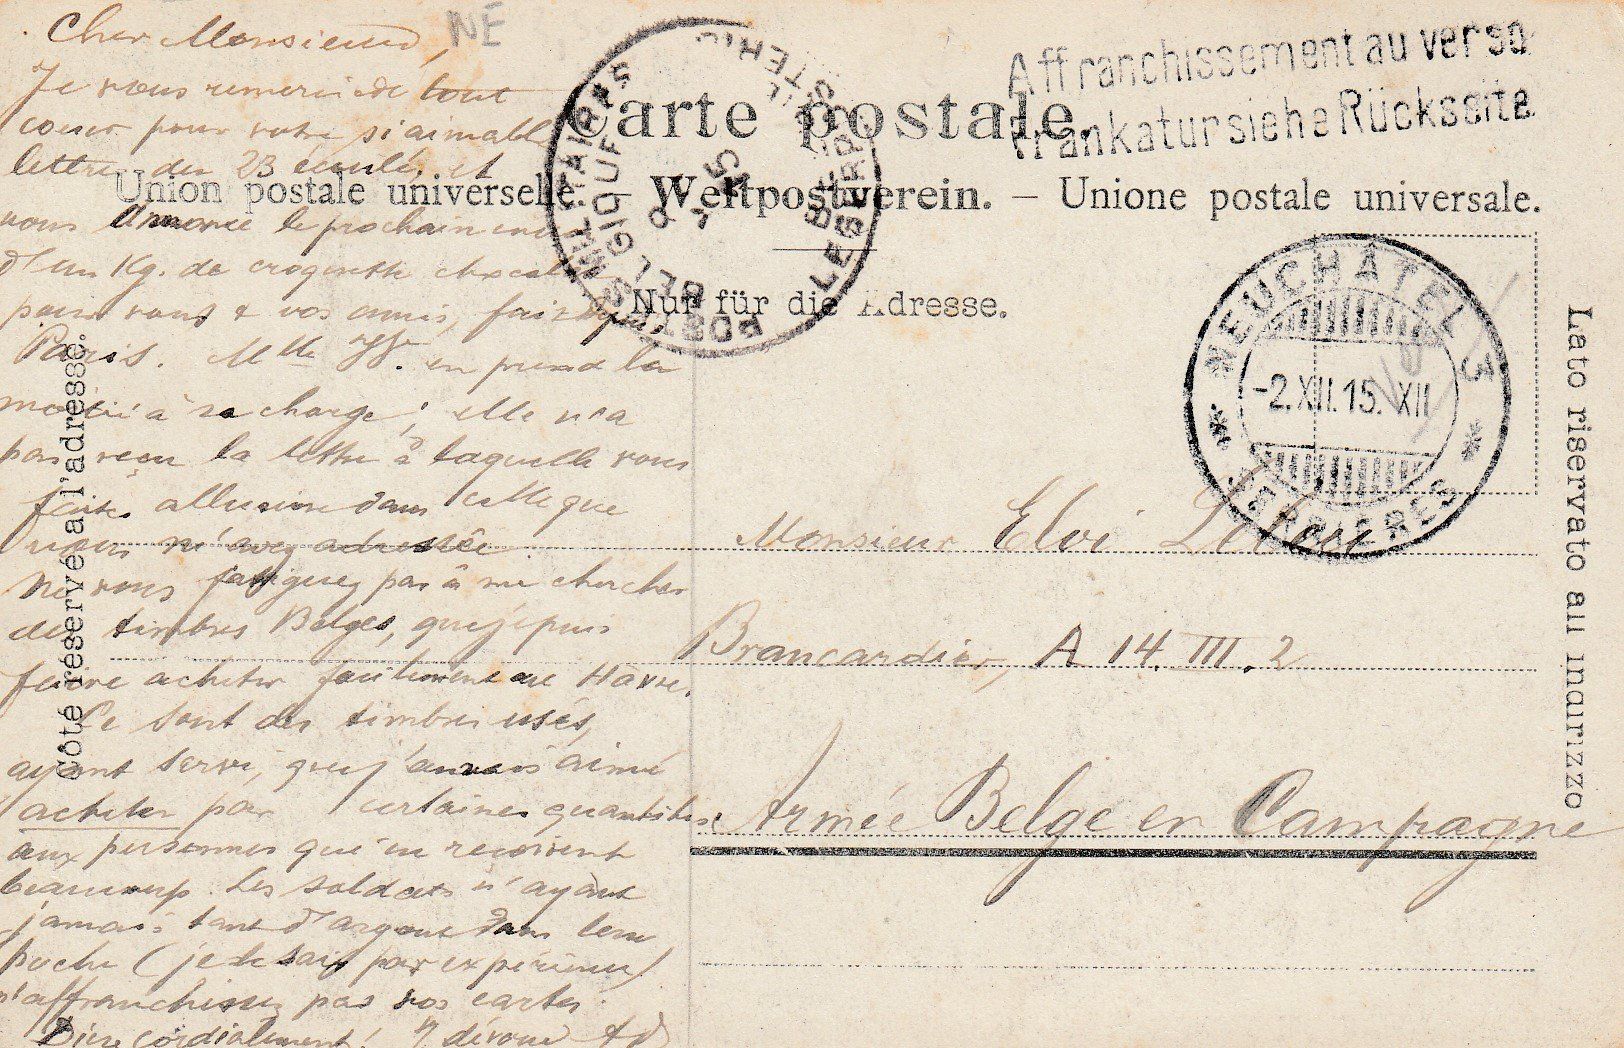 Cher Monsieur,
NE
Je vous remercie de tout
coeur pour votre si aimable
lettre du 23 écoulé, et
vous annonce le prochain envoi
d'un Kg. de croquette chocolat
pour vous & vos amis, fait depuis
Paris. Mlle en prend la
moitié à sa charge; elle n'a
pas reçu la lettre à laquelle vous
faites allusion dans celle que
vous m'avez adressée.
Ne vous fatiguez pas à me chercher
des timbres Belges, que je puis
faire acheter facilement au Havre.
Ce sont des timbres usés,
ayant servi, que j'aurais aimé
acheter par certaines quantités
aux personnes qui en reçoivent
beaucoup. Les soldats n'ayant
jamais tant d'argent dans leur
poche (je le sais par expérience)
n'affranchissez pas vos cartes.
Bien cordialement! dévoué
Carte postale.
Union postale universelle. – Weltpostverein. – Unione postale universale.
Nur für die Adresse.
Côté réservé à l'adresse.
Lato riservato al indirizzo
Affranchissement au verso
Frankatur siehe Rückseite
POSTES MILITAIRES
BELGIQUE
LEGERPOSTERIJ
NEUCHÂTEL 3
-2.XII.15. XII
SERRIÈRES
Monsieur Eloi
Brancardier, A 14. III. 2
Armée Belge en Campagne